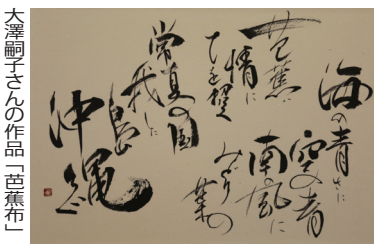 大澤嗣子さんの作品「芭蕉布」
海の青さに
空の青
南の風に
みどり葉の
芭蕉は
情に
手を招く
常夏の国
我した
島
沖縄